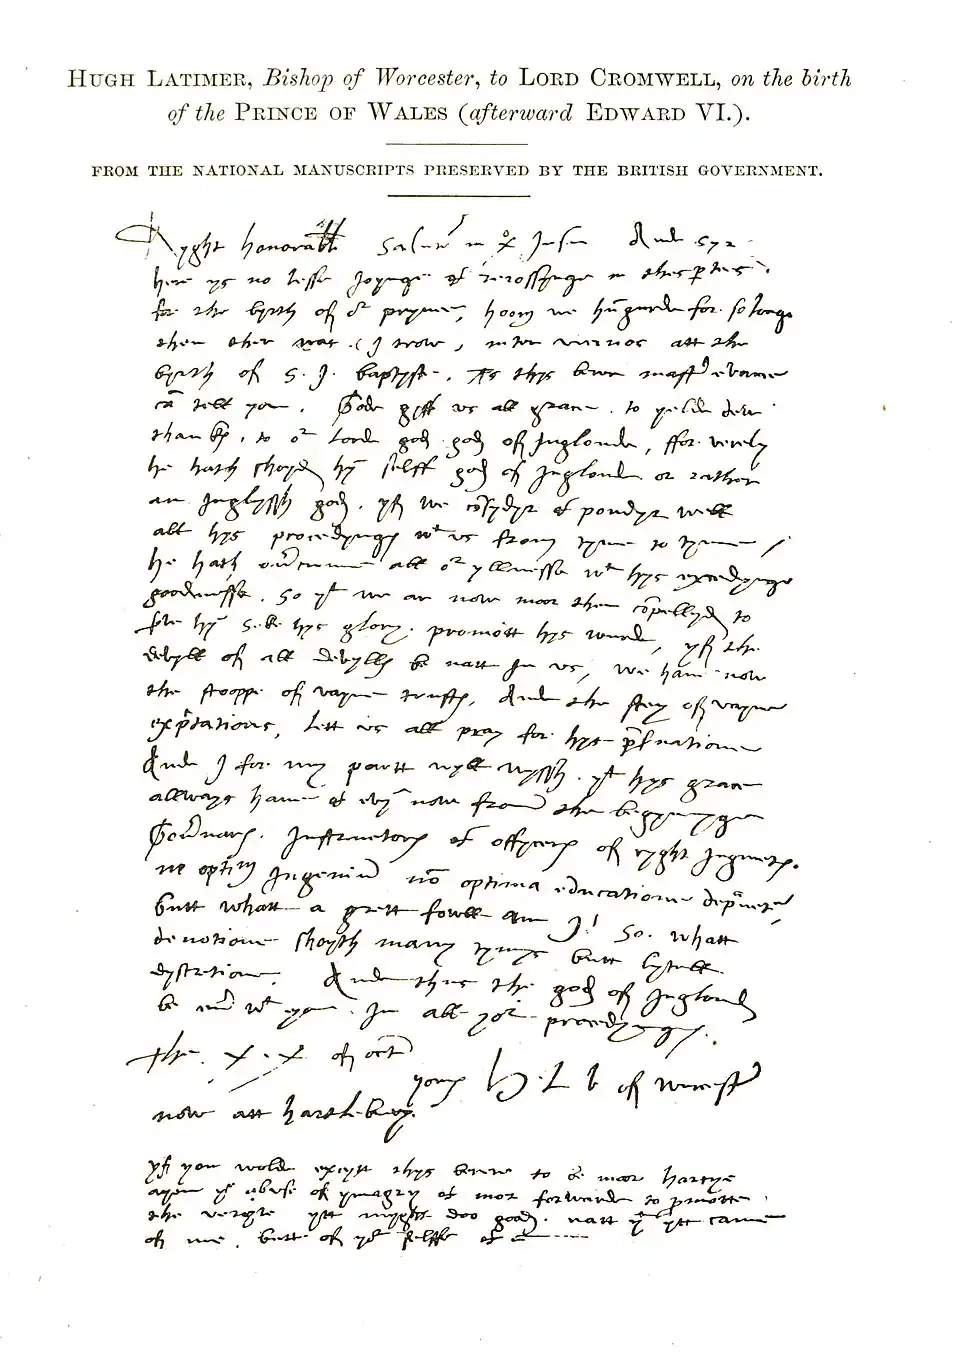 HUGH LATIMER, Bishop of Worcester, to LORD CROMWELL, on the birth
of the PRINCE OF WALES (afterward EDWARD VI.).
FROM THE NATIONAL MANUSCRIPTS PRESERVED BY THE BRITISH GOVERNMENT.
Ryght honorable Salutē in X Jesu And syr
here ys no lesse joynge & rejossynge in thes partees
for the byrth of or prynce, hoom we hūgurde for so longe
then ther was (I trow) inter vicinos att the
byrth of S. J. baptyste. As thys berer mastr evance
cā tell you. Gode gyff us all grace to yelde dew
thanks to or lorde god god of Inglonde, ffor verely
he hath shoyd hym selff god of Inglonde or rather
an Inglyssh god. yf we cōsydyr & pondyr well
all hys procedyngs wt us from tyme to tyme /
he hath overcumme all or yllnesse wt hys excedynge
goodnesse. So yt we ar now moor then cōpellyd to
serve hym Seke hys glory. promott hys wurde, yf the
devyll of all devylls be natt in us, we have now
the stooppe of vayne trusts, And the stey of vayne
expectations, lett us all pray for hys preservatione
And I for my partt wyll wyssh yt hys grace
allways have & evyn now from the begynynge
Governars. Instructors & offycers of ryght jugmēt.
ne optimū Ingeniū nō optima educatione depravetr,
butt whatt a grett fowll am I! So. whatt
devotione shoyth many tymys butt lytell
dyscretione. And thus the god of Inglonde
be ever wt you. In all yor procedyngs.
The X X of octr
yours H. L b of wurcestr
now att hartlebury
yf you wolde excytt thys berer to be moor hartye
ayen ye abuse of ymagry & mor forwarde to promotte
the veryte ytt myght doo good. natt yt ytt came
of me, butt of yor selffe &c